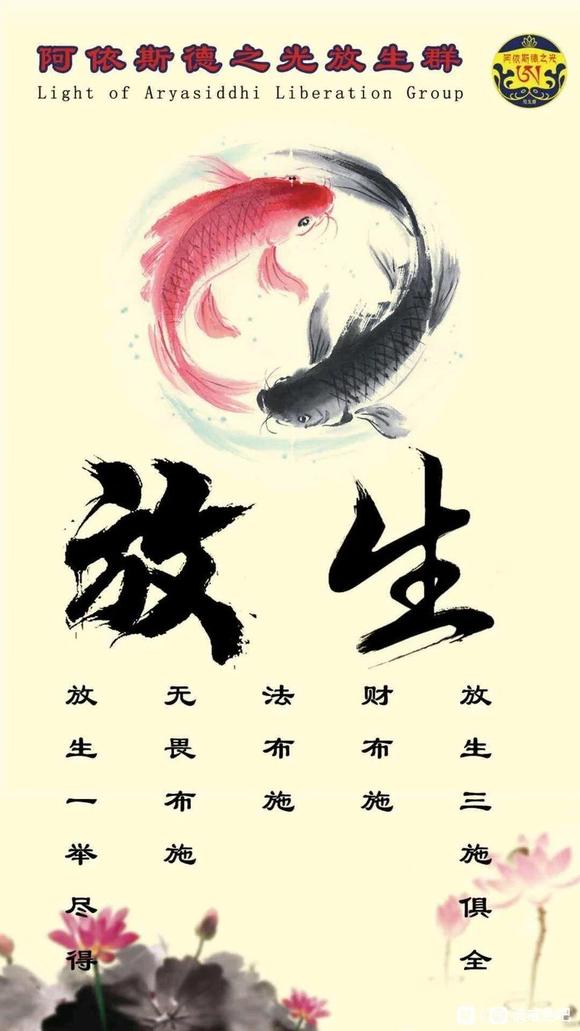 阿依斯德之光放生群
Light of Aryasiddhi Liberation Group
阿依斯德之光
放生
放生三施俱全
财布施
法布施
无畏布施
放生一举尽得